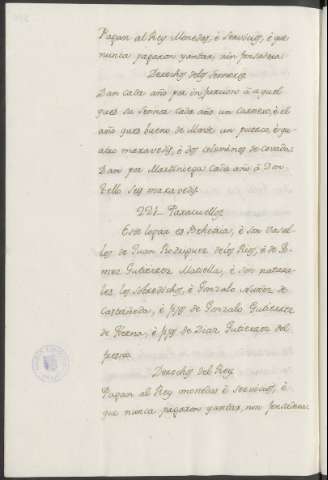 Pagan al Rey Monedas, è Servicios, è que
nunca pagaron yantar, nin fonsadera.
Derechos delos Señores
Dan cada año por Infurcion à aquel
ques su Señor cada año un carnero, è el
año ques bueno de Monte un puerco, è qu-
atro maravedis, è dos celemines de cevada.
Dan por Martiniega cada año à Don
Tello seis maravedis.
Paracuellos
Este logar es Behetria, è son Vasa-
llos de Juan Rodriguez de los Rios, è de Go-
mez Gutierrez Matiella, è son natura-
les los sobredichos, è Gonzalo Nuñez de
Castañeda, è fijos de Gonzalo Gutierrez
de Herena, è fijos de Diaz Gutierrez del
fresno
Derechos del Rey
Pagan al Rey monedas è servicios, è
que nunca pagaron yantar, nin fonsadera